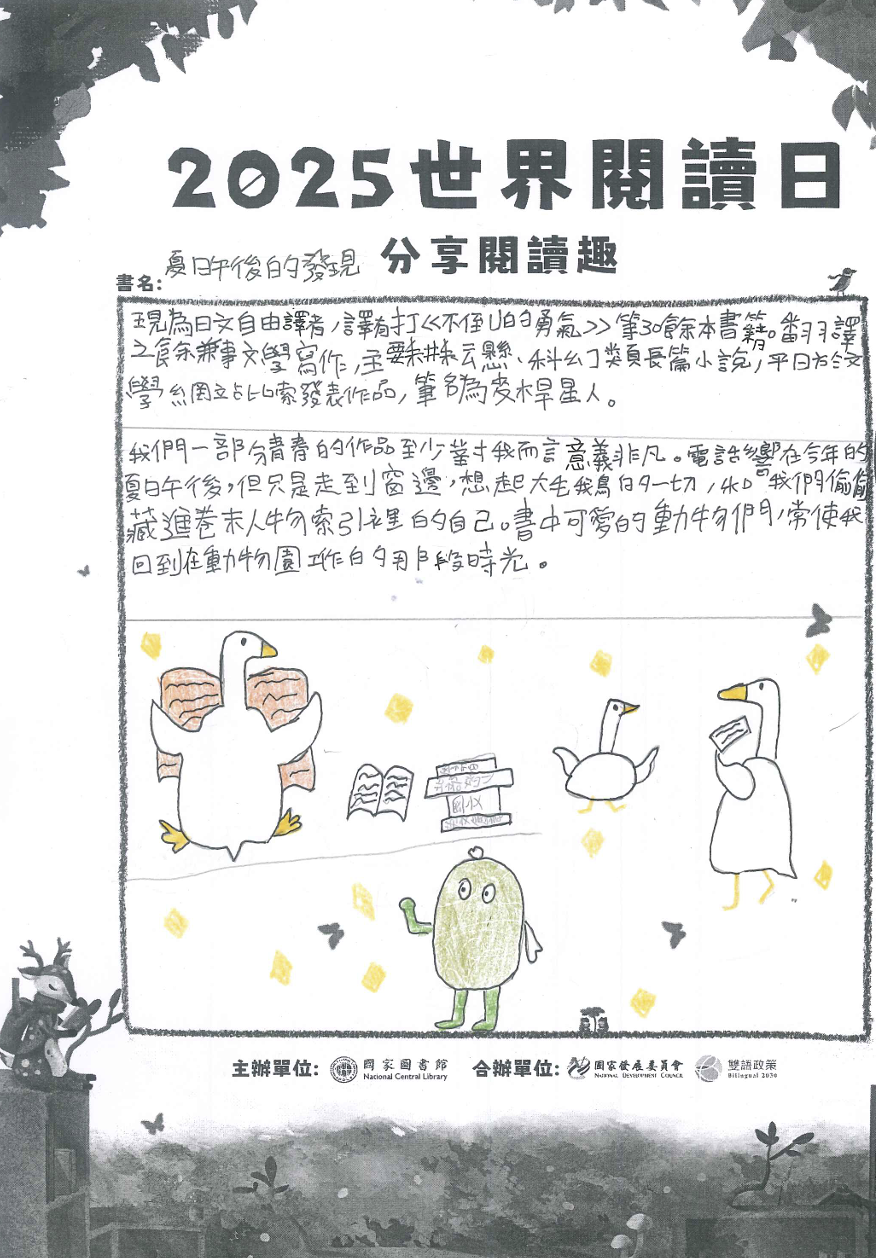 2025世界閱讀日
分享閱讀趣
書名:夏日午後的發現
現為日文自由譯者,譯有打<<不在山的勇氣>>等30餘本書籍。翻譯
之餘兼事文學寫作,主要 懸、科幻類長篇小說,平日於文
學網站 索發表作品,筆名為麥桿星人。
我們一部分青春的作品至少對我而言意義非凡。電話響在今年的
夏日午後,但只是走到窗邊,想起大 鳥的一切,如 我們偷偷
藏進卷末人物索引裡的自己。書中可愛的動物們,常使我
回到在動物園工作的那段時光。
主辦單位: 國家圖書館 合辦單位: 國家發展委員會 雙語政策
National Central Library NATIONAL DEVELOPMENT COUNCIL Bilingual 2030